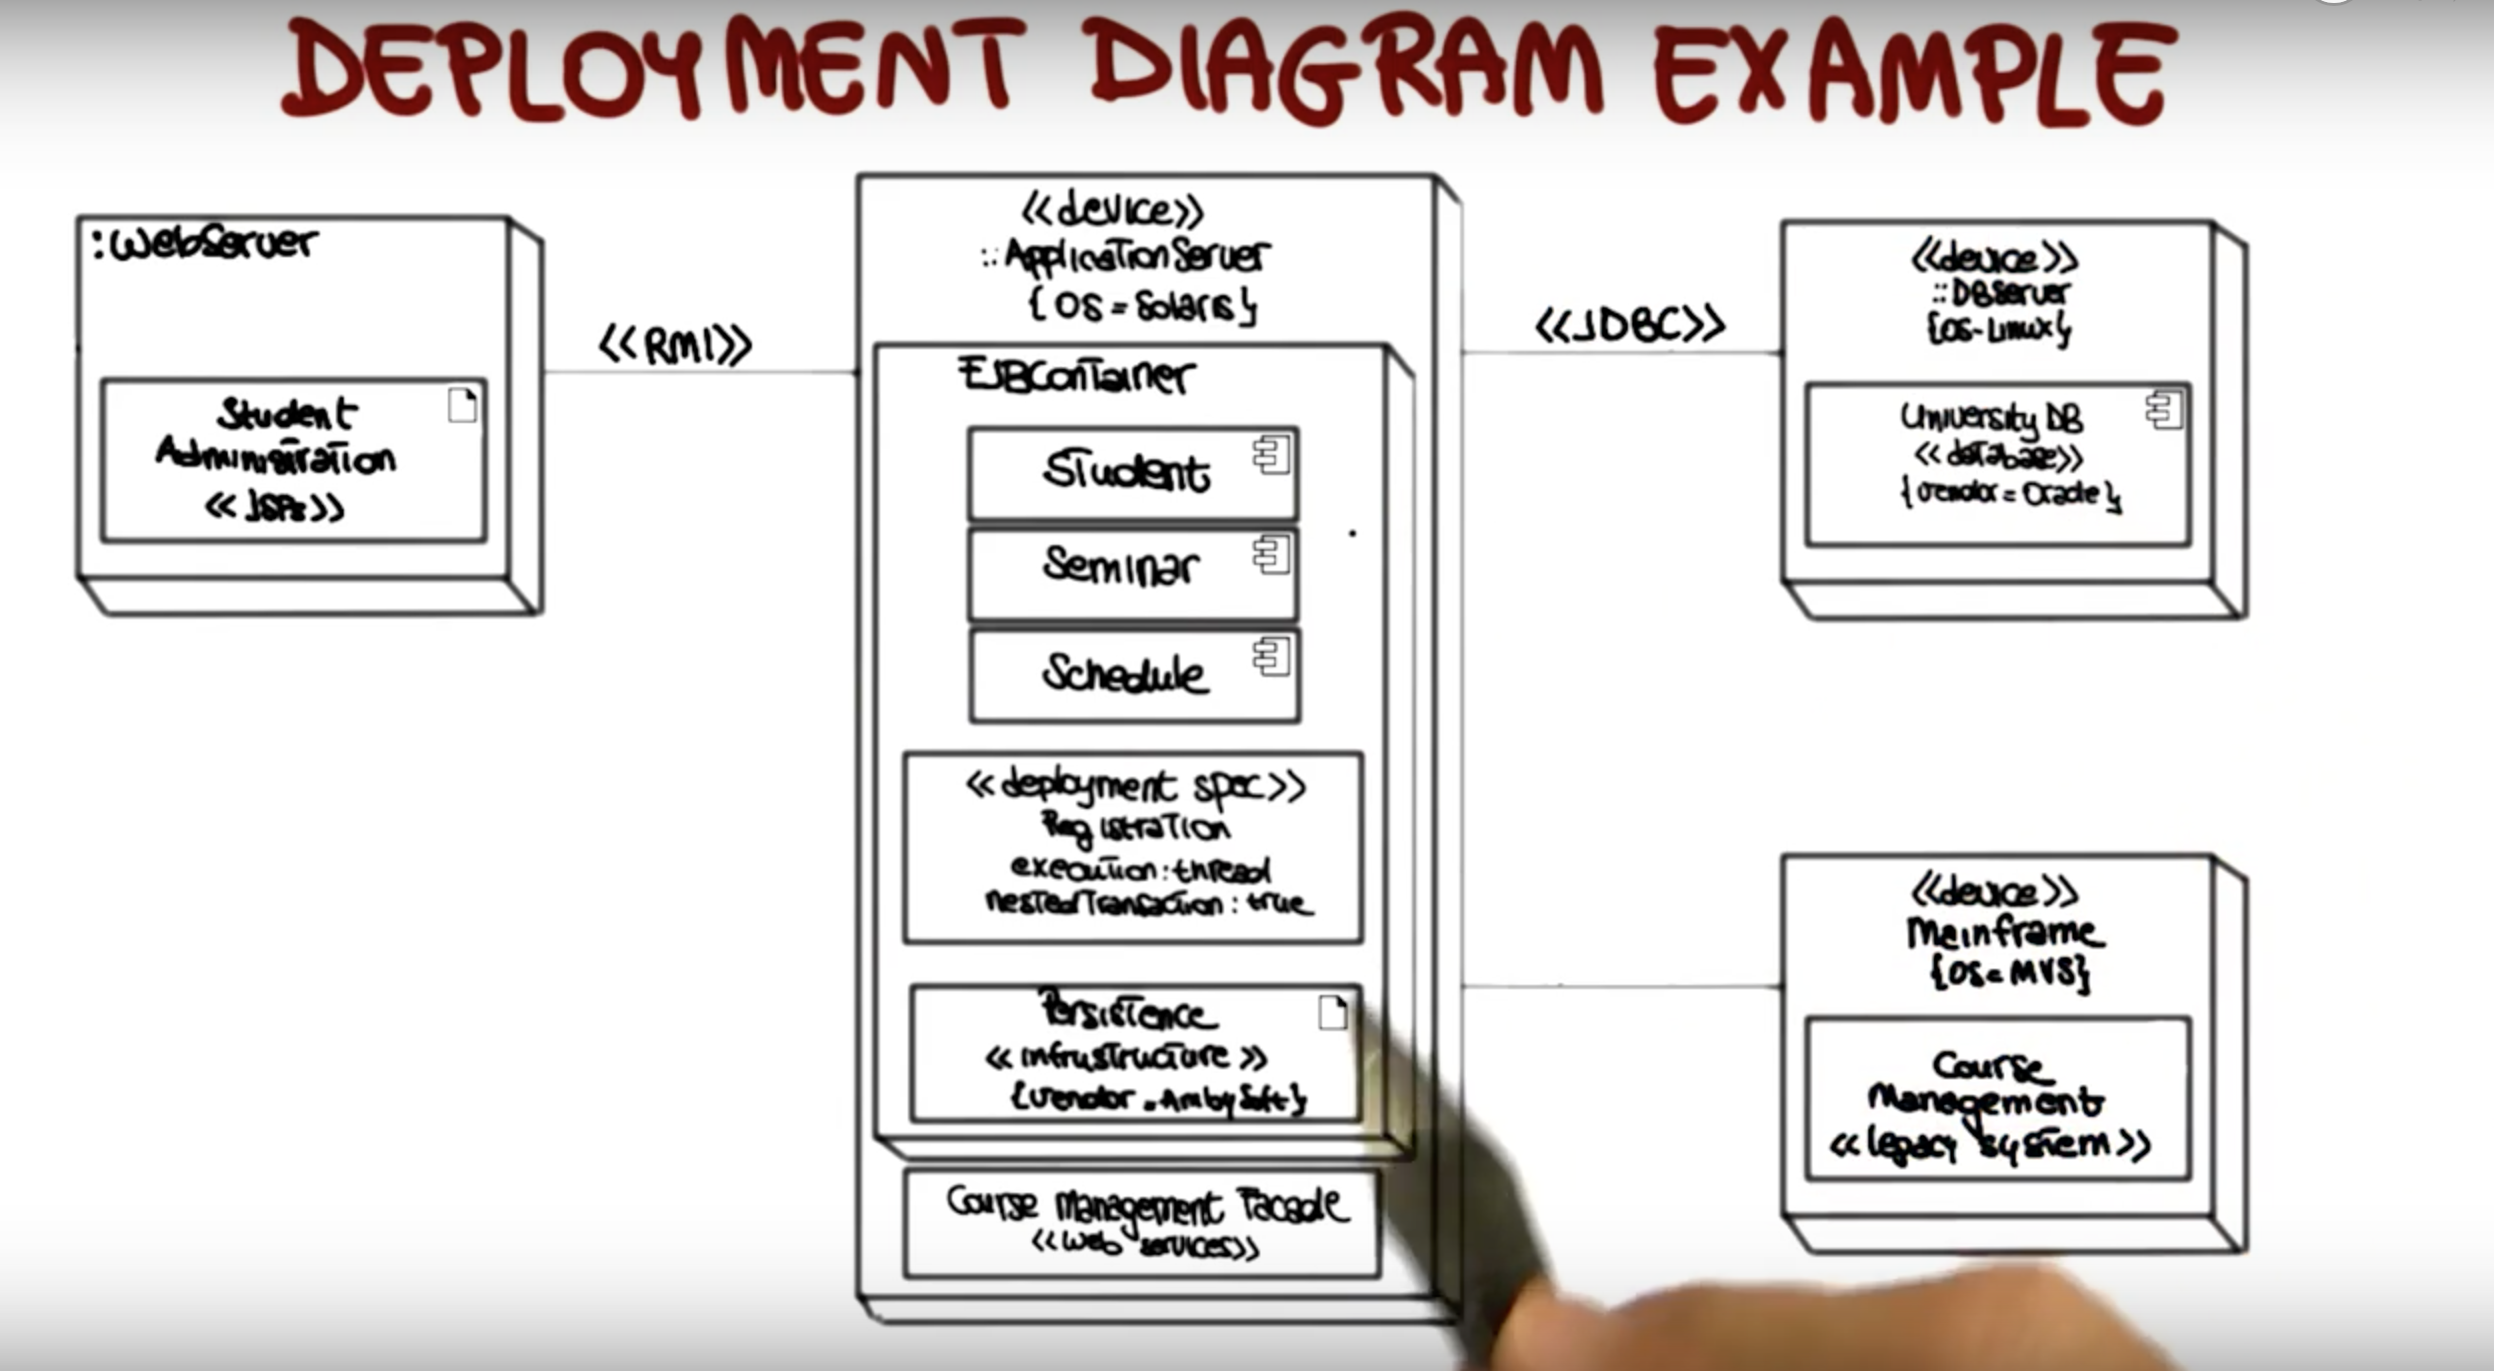 DEPLOYMENT DIAGRAM EXAMPLE
:WebServer
Student
Administration
<<JSPs>>
<<RMI>>
<<device>>
::ApplicationServer
{OS=Solaris}
EJBContainer
Student
Seminar
Schedule
<<deployment spec>>
Registration
execution:thread
nestedTransaction:true
Persistence
<<infrustructure>>
{vendor=Ambysoft}
Course Management Facade
<<web services>>
<<JDBC>>
<<device>>
::DBServer
{OS-Linux}
University DB
<<database>>
{vendor=Oracle}
<<device>>
Mainframe
{OS=MVS}
Course
Management
<<legacy system>>